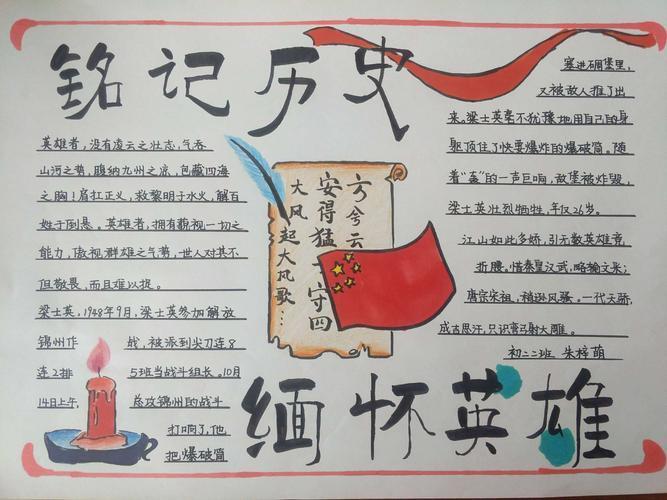 铭记历史
英雄者，没有凌云之壮志，气吞
山河之势，腹纳九州之底，包藏四海
之胸！肩扛正义，救黎明于水火，解百
姓于倒悬。英雄者，拥有藐视一切之
能力，傲视群雄之气势，世人对其不
但敬畏，而且难以捉。
梁士英，1948年9月，梁士英参加解放
锦州作战，被派到尖刀连8
连2排5班当战斗组长。10月
14日上午，总攻锦州的战斗
打响了，他
把爆破筒
塞进碉堡里，
又被敌人推了出
来。梁士英毫不犹豫地用自己的身
躯顶住了快要爆炸的爆破筒。随
着“轰”的一声巨响，敌堡被炸毁，
梁士英壮烈牺牲，年仅26岁。
江山如此多娇，引无数英雄竞
折腰，惜秦皇汉武，略输文采；
唐宗宋祖，稍逊风骚。一代天骄，
成吉思汗，只识弯弓射大雕。
初二二班 朱梓萌
方兮云
安得猛 守四
大风起大风歌…
缅怀英雄